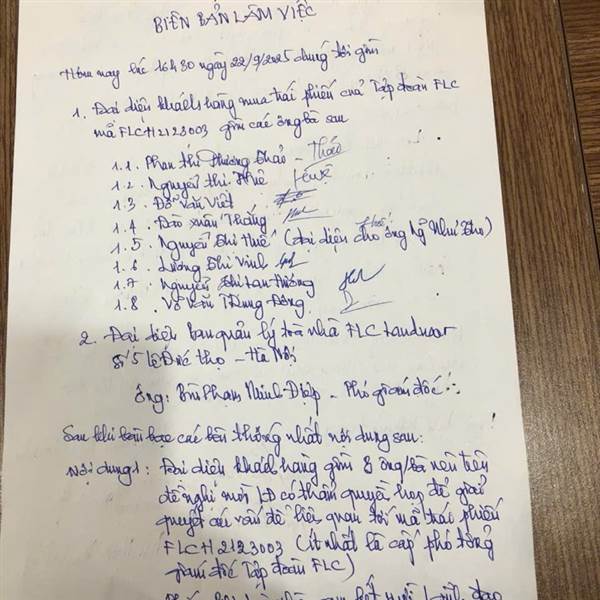 BIÊN BẢN LÀM VIỆC
Hôm nay lúc 16h30 ngày 22/9/2025 chúng tôi gồm
1. Đại diện khách hàng mua trái phiếu của Tập đoàn FLC
mã FLCH2123003 gồm các ông bà sau
1.1. Phan thị Phương Thảo - Thảo
1.2. Nguyễn thị Huê
1.3 Đỗ Văn Viết
1.4. Đào Xuân Thắng
1.5 Nguyễn Thị thuế (đại diện cho ông Ng Như Thọ)
1.6 Lương Thị Vinh
1.7 Nguyễn Thị Lan Hương
1.8 Võ Văn Trung Đông
2. Đại diện ban quản lý tòa nhà FLC Landmar
số 5 Lê Đức thọ - Hà Nội
ông: Bùi Phạm Minh Điệp - Phó giám đốc
Sau khi bàn bạc các bên thống nhất nội dung sau:
Nội dung 1: Đại diện khách hàng gồm 8 ông/bà nêu trên
đề nghị mời LĐ có thẩm quyền họp để giải
quyết các vấn đề liên quan tới mã trái phiếu
FLCH2123003 (ít nhất là cấp phó tổng
giám đốc Tập đoàn FLC)